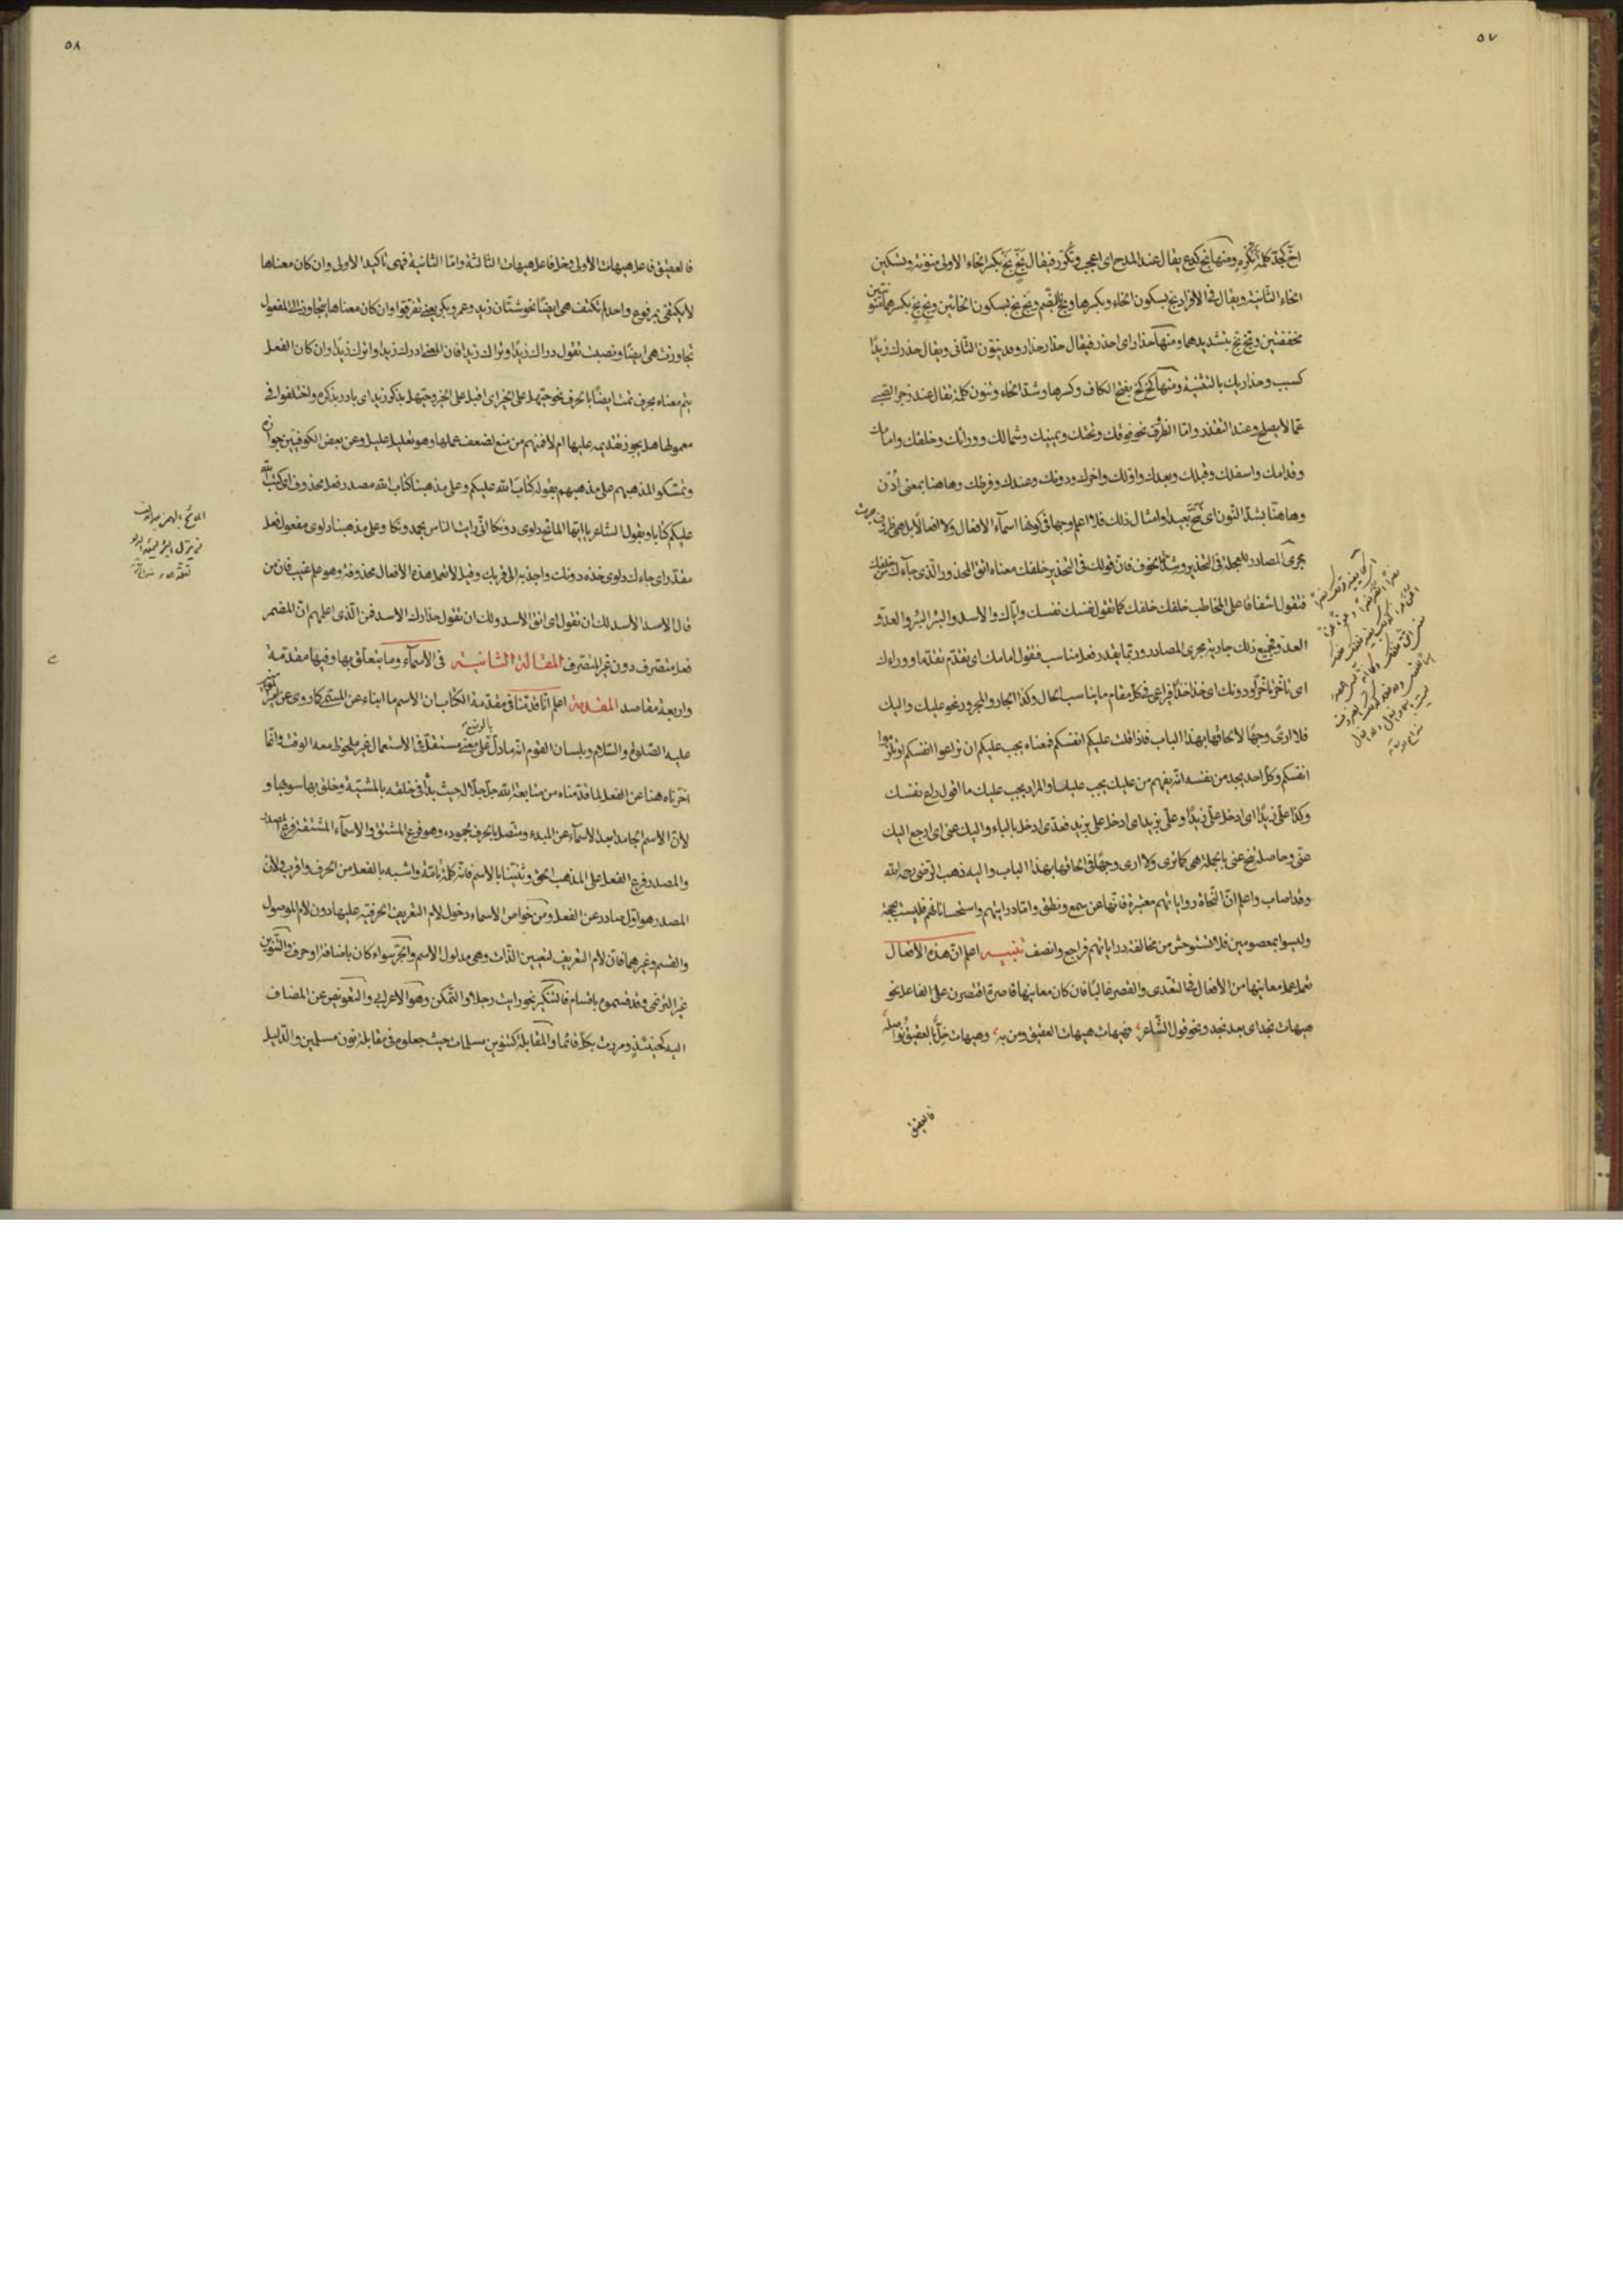 ٥٧
اخّ كجدّ كلمة تكره ومنها بخ كدع يقال عند المدح اى اعجب وتكرّر فيقال بخٍ بخْ بكسر الخاء الاولى منوّنة وتسكين
الخاء الثانية ويقال فى الافراد بخ بسكون الخاء وبكسرها وبخ بالضم وبخ بخ بسكون الخائين وبخ بخ بكسرهما منونتين
مخففتين وبخ بخ بتشديدهما ومنها حذار اى احذر فيقال حذار حذار وقد ينون الثانى ويقال حذرك زيدًا
كسبب وحذاريك بالتثنية ومنها كخ كخ بفتح الكاف وكسرها وشد الخاء وتنون كلمة تقال عند زجر الصبى
عمّا لا يصلح وعند التقذر وامّا الظرف نحو فوقك وتحتك ويمينك وشمالك وورائك وخلفك وامامك
وقدامك واسفلك وقبلك وبعدك واولك واخرك ودونك وعندك وفرطك وهاهنا بمعنى اُدْن
وهاهنّا بشد النون اى تنحّ بعيدا وامثال ذلك فلا اعلم وجها فى كونها اسمآء الافعال ولا افعالًا بل هى ظروف جرت
مجرى المصادر للعجلة فى التحذير وشدة الخوف فان قولك فى التحذير خلفك معناه اتق المحذور الذى جآءك من خلفك
فتقول اشفاقا على المخاطب خلفك خلفك كما تقول نفسك نفسك وايّاك والاسد والبئر البئر والعدوّ
العدوّ فجميع ذلك جارية مجرى المصادر وربّما يقدر فعل مناسب فتقول امامك اى تقدّم تقدّما ووراءك
اى تأخر تأخرًا ودونك اى خذ اخذًا فراعى فى كل مقام ما يناسب الحال وكذا الجار والمجرور نحو عليك واليك
فلا ارى وجهًا لالحاقها بهذا الباب فاذا قلت عليكم انفسكم فمعناه يجب عليكم ان تراعوا انفسكم او تلزموا
انفسكم وكل احد يجد من نفسه انه يفهم من عليك يجب عليك والمراد يجب عليك ما اقول راع نفسك
وكذا علىّ زيدًا اى ادخل علىّ زيدًا وعلىّ بزيد اى ادخل علىّ بزيد فعدّى ادخل بالباء واليك عنى اى ارجع اليك
عنى وحاصله تنح عنى بالجملة هى كما ترى ولا ارى وجهًا فى الحاقها بهذا الباب واليه ذهب الرضى رحمه الله
وقد اصاب واعلم انّ النحاة رواياتهم معتبرة فانها عن سمع ونطق وامّا دراياتهم واستحساناتهم فليست بحجة
وليسوا بمعصومين فلا تستوحش من مخالفة دراياتهم فراجع وانصف تنبيه اعلم انّ هذه الافعال
تعمل عمل معانيها من الافعال فى التعدى والقصر غالبًا فان كان معانيها قاصرة اقتصرن على الفاعل نحو
هيهات نجد اى بعد نجد ونحو قول الشاعر فهيهات هيهات العقيق ومن به وهيهات خلٌّ بالعقيق نواصله
فالعقيق
٥٨
فالعقيق فاعل هيهات الاولى وخل فاعل هيهات الثالثة وامّا الثانية فهى تاكيد الاولى وان كان معناها
لا يكتفى بمرفوع واحد لم تكتف هى ايضًا نحو شتّان زيد وعمرو وبكر يعنى تفرّقوا وان كان معناها يتجاوز الى المفعول
تجاوزت هى ايضًا ونصبت تقول دراك زيدًا وتراك زيدا فان المعنى ادرك زيدا واترك زيدًا وان كان الفعل
يتم معناه بحرف تمت ايضًا بالحرف نحو حيّهل على الخير اى اقبل على الخير وحيّهل بذكر زيد اى بادر بذكره واختلفوا فى
معمولها هل يجوز تقديمه عليها ام لا فمنهم من منع لضعف عملها وهو تعليل عليل وعن بعض الكوفيين جوازه
وتمسكوا لمذهبهم على مذهبهم بقوله كتاب الله عليكم وعلى مذهبنا كتاب الله مصدر فعل محذوف اى كتب الله
عليكم كتابا وبقول الشاعر يا ايّها المائح دلوى دونكا انّى رايت الناس يحمدونكا وعلى مذهبنا دلوى مفعول فعل
مقدّر اى جاءك دلوى خذه دونك واجذبه الى قربك وقيل لا تعمل هذه الافعال محذوفة وهو علم غيب فان من
قال الاسد الاسد لك ان تقول اى اتق الاسد ولك ان تقول حذارك الاسد فمن الّذى اعلمهم انّ المضمر
فعل متصرف دون غير المتصرف المقالة الثانية فى الاسمآء وما يتعلّق بها وفيها مقدّمة
واربعة مقاصد المقدمة اعلم انّا قدّمنا فى مقدّمة الكتاب ان الاسم ما انباء عن المسمى كما روى عن امير المؤمنين
عليه الصلوة والسّلام وبلسان القوم انّه ما دلّ على معنى مستقل فى الاستعمال غير ملحوظ معه الوقت وانّما
بالوضع
اخرناه هنا عن الفعل لما قدّمناه من متابعة الله جلّ جلاله حيث بدأ فى خلقه بالمشيّة وخلق بها سويها و
لانّ الاسم الجامد ابعد الاسمآء عن المبدء ومتّصل بالحرف بجموده وهو فرع المشتق والاسمآء المشتقة فرع المصدر
والمصدر فرع الفعل على المذهب الحق وثنّينا بالاسم فانّه كلمة تامّة واشبه بالفعل من الحرف واقرب ولانّ
المصدر هو اول صادر عن الفعل ومن خواصّ الاسماء دخول لام التعريف الحرفيّة عليها دون لام الموصول
والقسم وغيرهما فان لام التعريف لتعيين الذّات وهى مدلول الاسم والجر سواء كان باضافة او حرف والتنوين
غير الترنمى وقد قسموه باقسام فالتنكير نحو رايت رجلا والتمكن وهو الاعرابى والتعويض عن المضاف
اليه كحينئذٍ ومررت بكلّ قائما والمقابلة كتنوين مسلمات حيث جعلوه فى مقابلة نون مسلمين والدليل